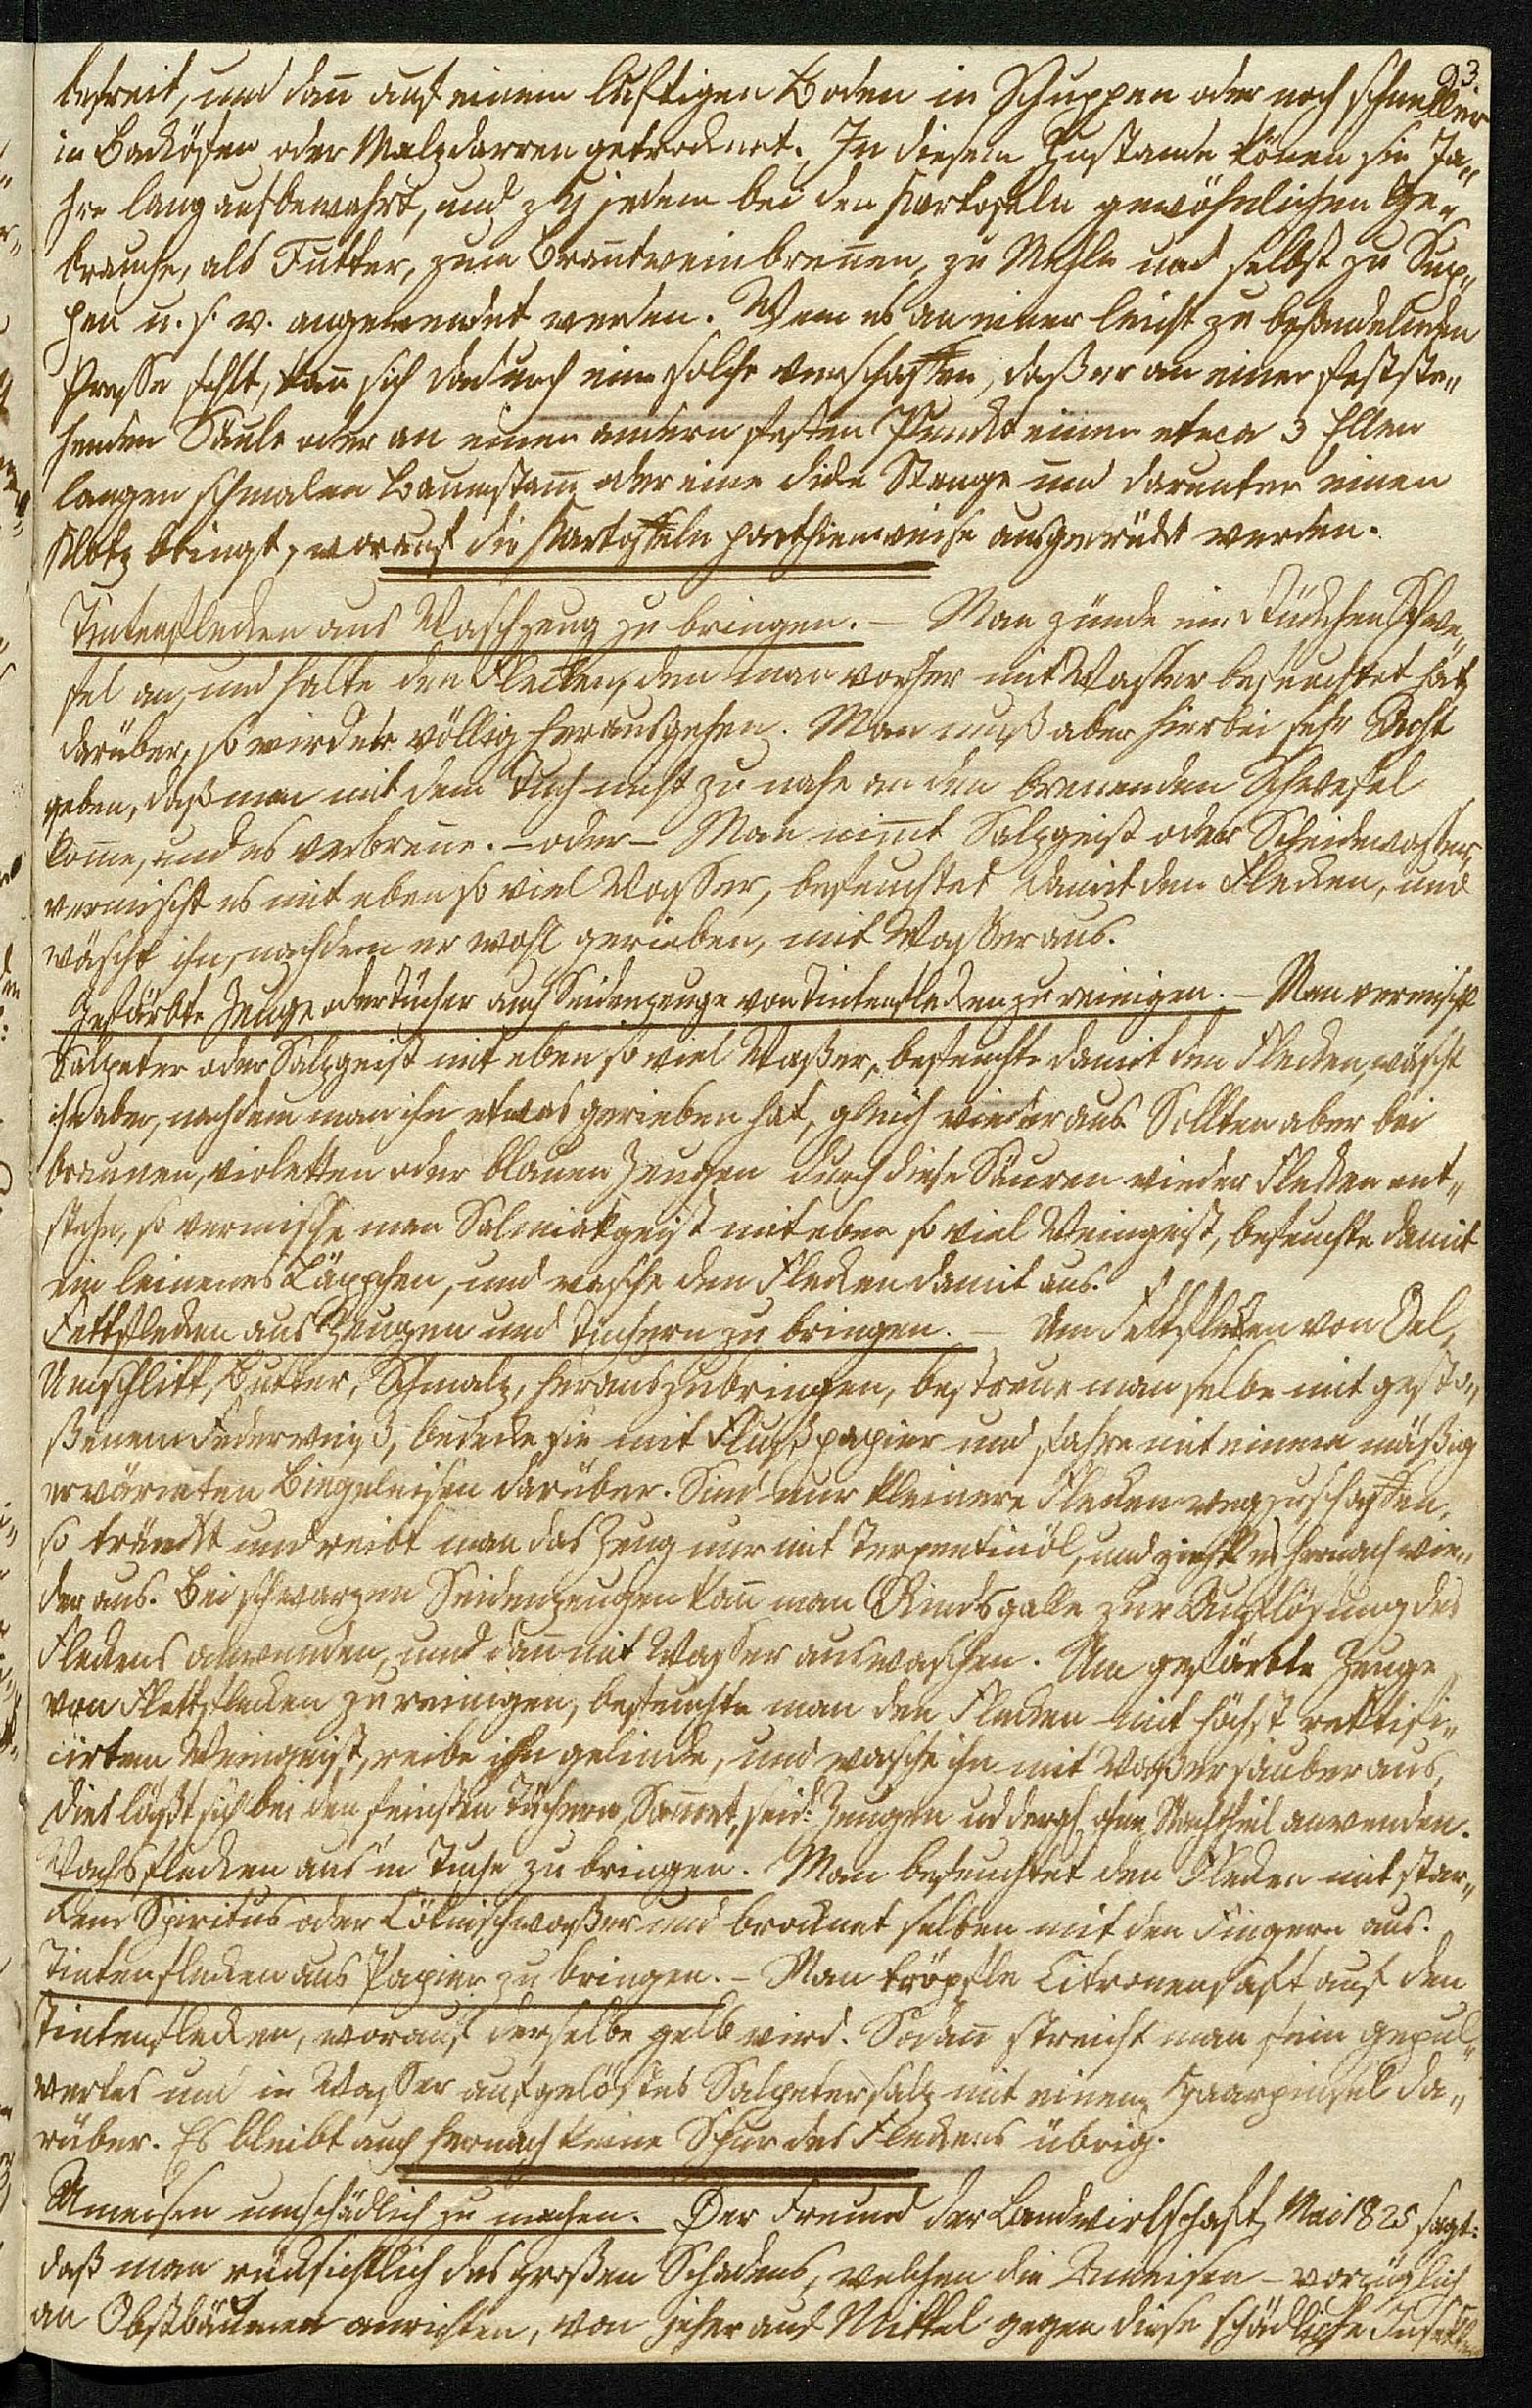 23
befreit, und dan̄ auf einem luftigen Boden in Schuppen oder noch schneller
in Backöfen oder Malzdarren getrocknet. In diesem Zustande kön̄en sie Ja„
hre lang aufbewahrt, und zu jedem bei den Kartofeln gewöhnlichen Ge„
brauche, als Futter, zum Bran̄tweinbren̄en, zu Mehle und selbst zu Sup„
pen u. s. w. angewendet werden. Wem es an einer leicht zu behandelnden
Presse fehlt, kan̄ sich dadurch eine solche verschaffen, daß er an einer festste„
henden Säule oder an einen andern festen Punckt einen etwa 3 Ellen
langen schmalen Baumstam̄ oder eine dicke Stange und darunter einen
Klotz bringt, worauf die Kartoffeln parthienweise ausgedrückt werden.
Tintenflecken aus Waschzeug zu bringen. – Man zünde ein Stückchen Schwe„
fel an, und halte den Flecken, den man vorher mit Wasser befeuchtet hat,
darüber, so wird er völlig herausgehen. Man muß aber hierbei sehr Acht
geben, daß man mit dem Tuch nicht zu nahe an den bren̄enden Schwefel
kom̄e, und es verbren̄e. – oder – Man nim̄t Salzgeist oder Scheidewasser,
vermischt es mit eben so viel Wasser, befeuchtet damit den Flecken, und
wäscht ihn, nachdem er wohl gerieben, mit Wasser aus.
Gefärbte Zeuge oder Tücher auch Seidenzeuge von Tintenflecken zu reinigen. – Man vermischt
Salpeter oder Salzgeist mit eben so viel Waßer, befeuchte damit den Flecken, wäscht
ihn aber, nachdem man ihn etwas gerieben hat, gleich wieder aus. Sollten aber bei
braunen, violetten oder blauen Zeugen durch diese Säuren wieder Flecken ent„
stehn, so vermische man Salmiakgeist mit eben so viel Weingeist, befeuchte damit
ein leinenes Läppchen, und wasche den Flecken damit aus.
Fettflecken aus Zeugen und Tüchern zu bringen. – Um Fettflecken von Oel,
Unschlitt, Butter, Schmalz, herauszubringen, bestreue man selbe mit gesto„
ßenem Federweiß, bedecke sie mit Flußpapier und fahre mit einem mäßig
erwärmten Biegeleisen darüber. Sind nur kleinere Flecken wegzuschaffen,
so tränckt und reibt man das Zeug nur mit Terpentinöl, und zieht es hernach wie„
der aus. Bei schwarzen Seidenzeugen kan̄ man Rindsgalle zur Auflösung des
Fleckens anwenden, und dan̄ mit Wasser auswaschen. Um gefärbte Zeuge
von Flettflecken zu reinigen, befeuchte man den Flecken mit höchst rektifi„
cirten Weingeist, reibe ihn gelinde, und wasche ihn mit Waßer sauber aus,
dies läßt sich bei den feinsten Tüchern, Sam̄et, seid: Zeugen u d dergl. ohne Nachtheil anwenden.
Wachsflecken aus'm Tuche zu bringen. Man befeuchtet den Flecken mit star„
kem Spiritus oder Cölnischwaßer und brocknet selben mit den Fingern aus.
Tintenflecken aus Papier zu bringen. – Man tröpfle Citronensaft auf den
Tintenflecken, worauf derselbe gelb wird. Sodan̄ streicht man fein gepul„
vertes und in Wasser aufgelöstes Salpetersalz mit einem Haarpinsel da„
rüber. Es bleibt auch hernach keine Spur des Fleckens übrig.
Ameisen unschädlich zu machen. Der Freund der Landwirtschaft, Mai 1825 sagt:
daß man rücksichtlich des großen Schadens, welchen die Ameisen – vorzüglich
an Obstbäumen anrichten, von jeher auf Mittel gegen diese schädliche Insekten